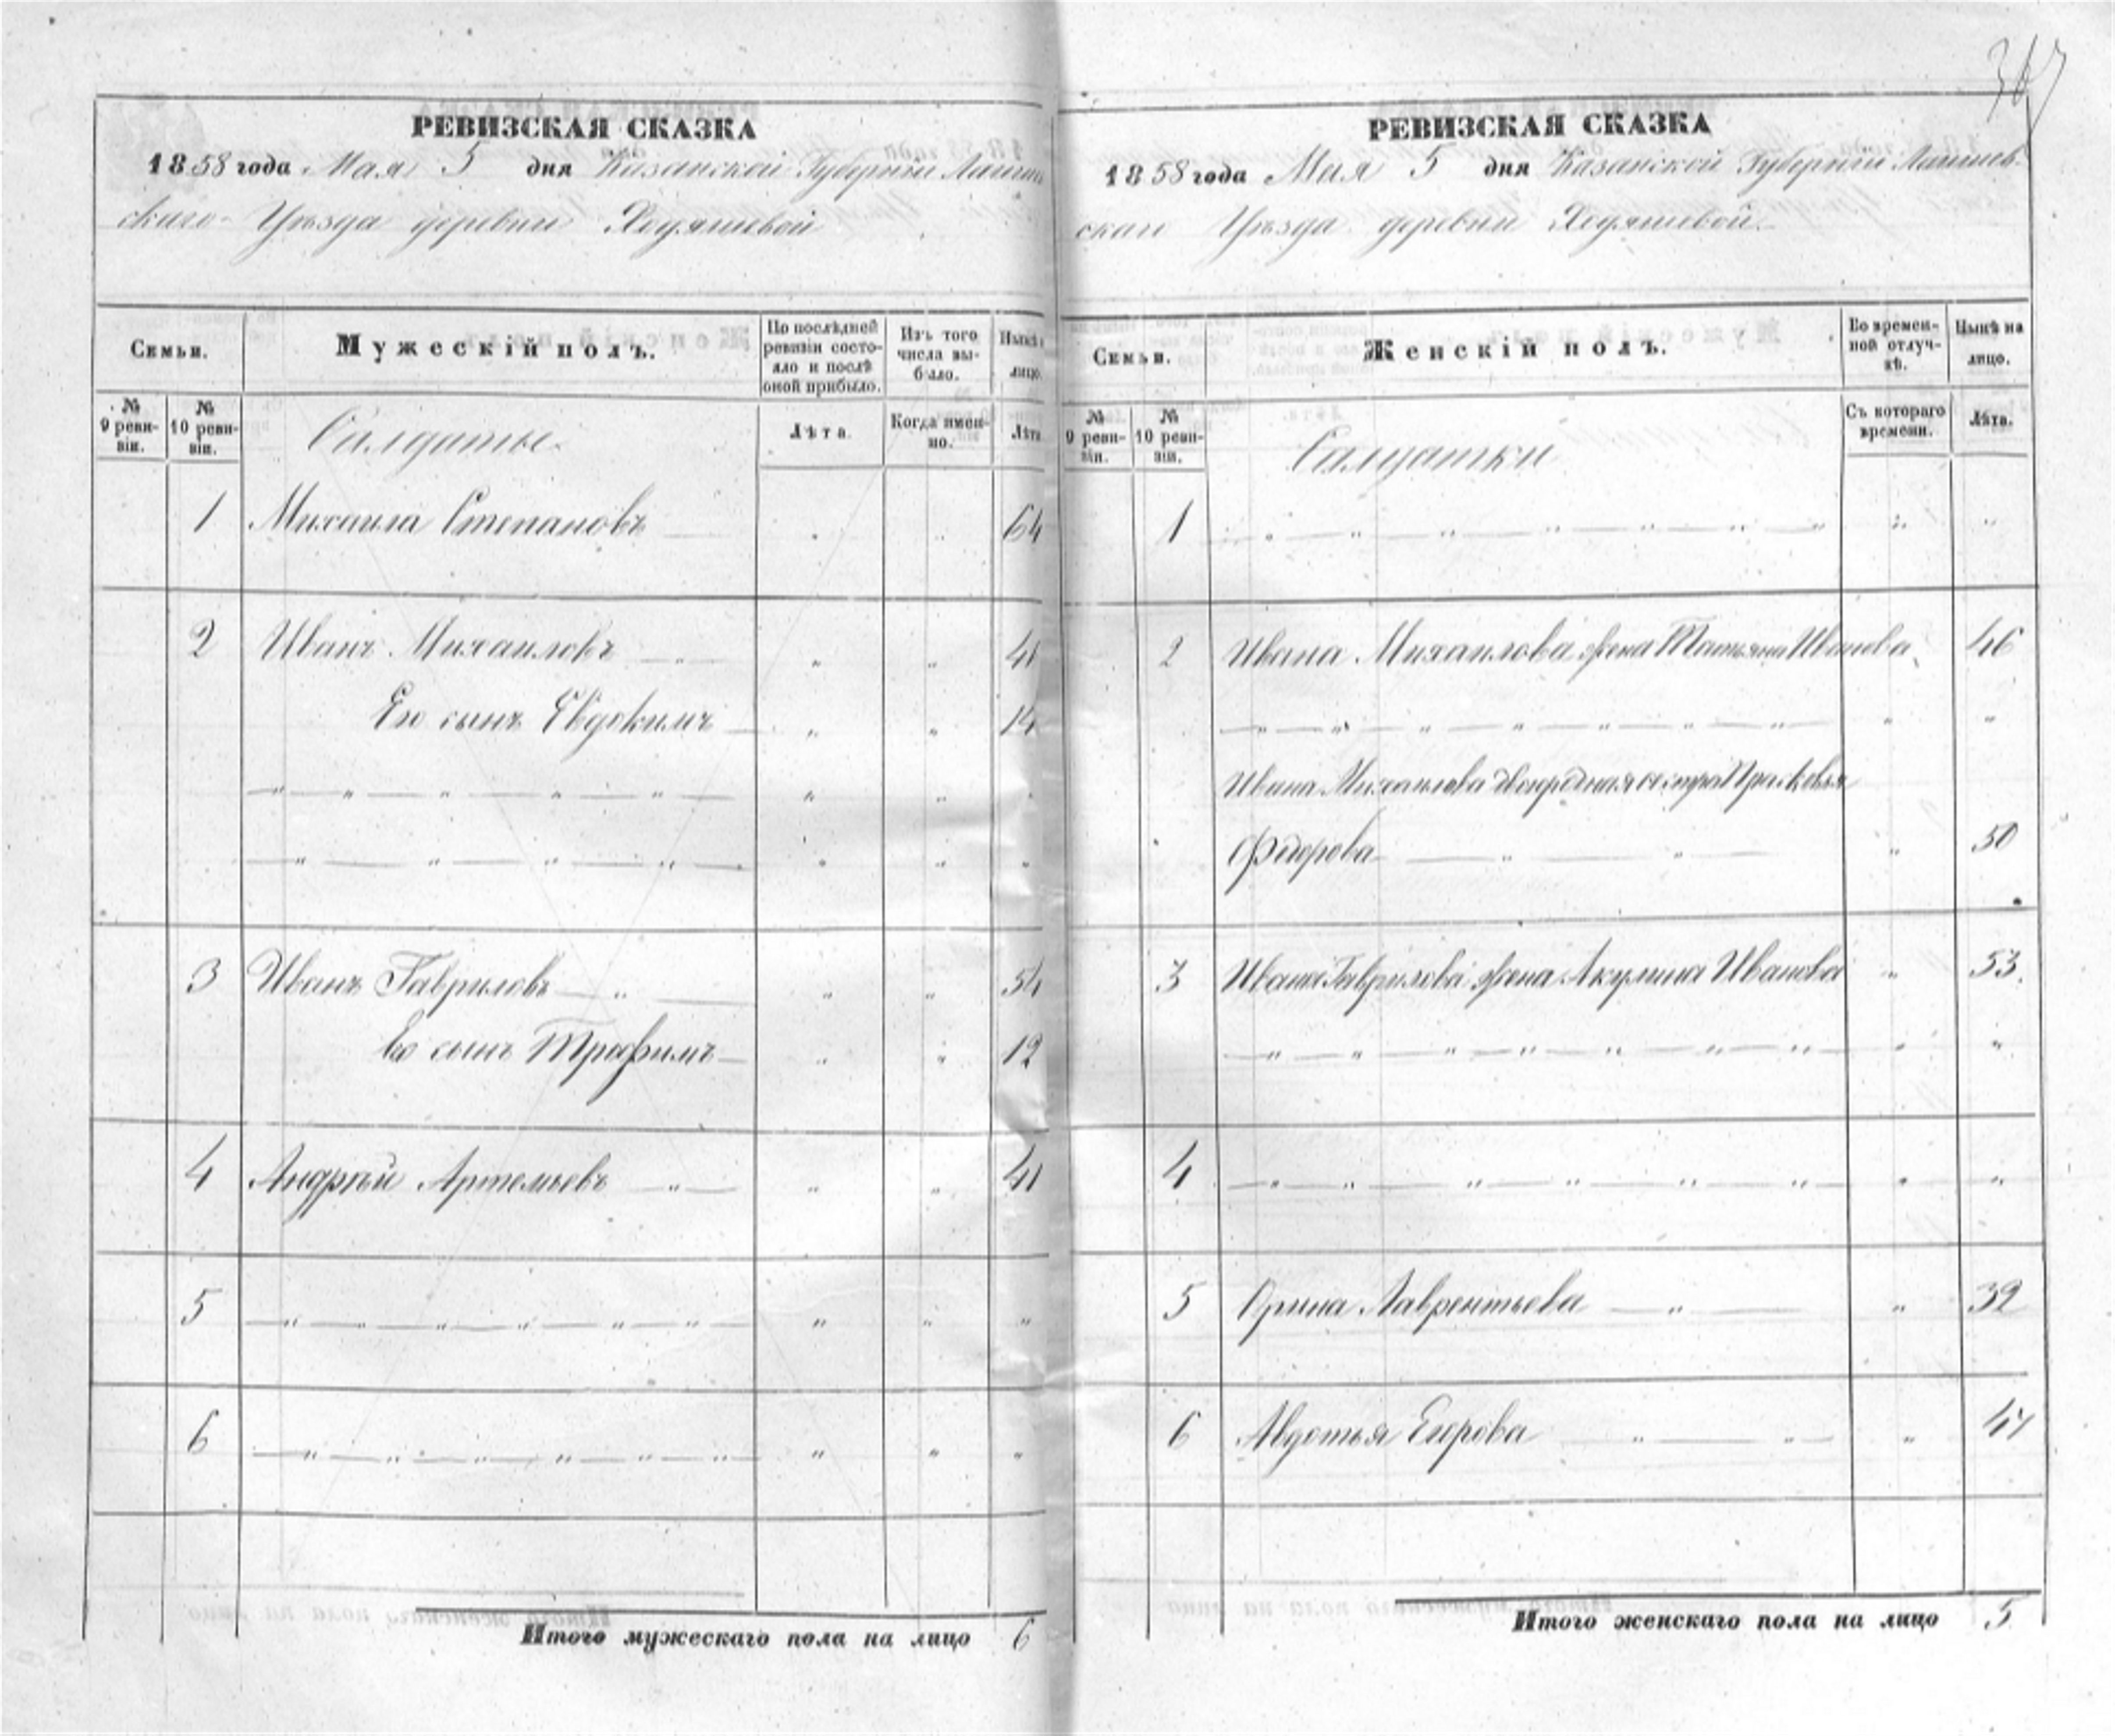 367
РЕВИЗСКАЯ СКАЗКА
1858 года Мая 5 дня Казанской Губерніи Лаишев
скаго Уѣзда деревни Ходяшевой
Семьи.
Мужескій полъ.
По послѣдней ревизіи состояло и послѣ оной прибыло.
Изъ того числа выбыло.
Нынѣ на лицо.
№ 9 ревизіи.
№ 10 ревизіи.
Салдаты
Лѣта.
Когда именно.
Лѣта
1 Михаила Степановъ 64
2 Иванъ Михаиловъ 41
Ею сынъ Евдокимъ 14
3 Иванъ Гавриловъ 54
Ею сынъ Трофимъ 12
4 Андрѣй Артемьевъ 41
5
6
Итого мужескаго пола на лицо 6
РЕВИЗСКАЯ СКАЗКА
1858 года Мая 5 дня Казанской Губерніи Лаишев-
скаго Уѣзда деревни Ходяшевой.
Семьи.
Женскій полъ.
Во временной отлучкѣ.
Нынѣ на лицо.
№ 9 ревизіи.
№ 10 ревизіи.
Салдатки
Съ котораго времени.
Лѣта.
1
2 Ивана Михаилова жена Татьяна Иванова 46
Ивана Михаилова двоюродная сестра Прасковья
Федорова 50
3 Ивана Гаврилова жена Акулина Иванова 53.
4
5 Орина Лаврентьева 39
6 Авдотья Егорова 47
Итого женскаго пола на лицо 5